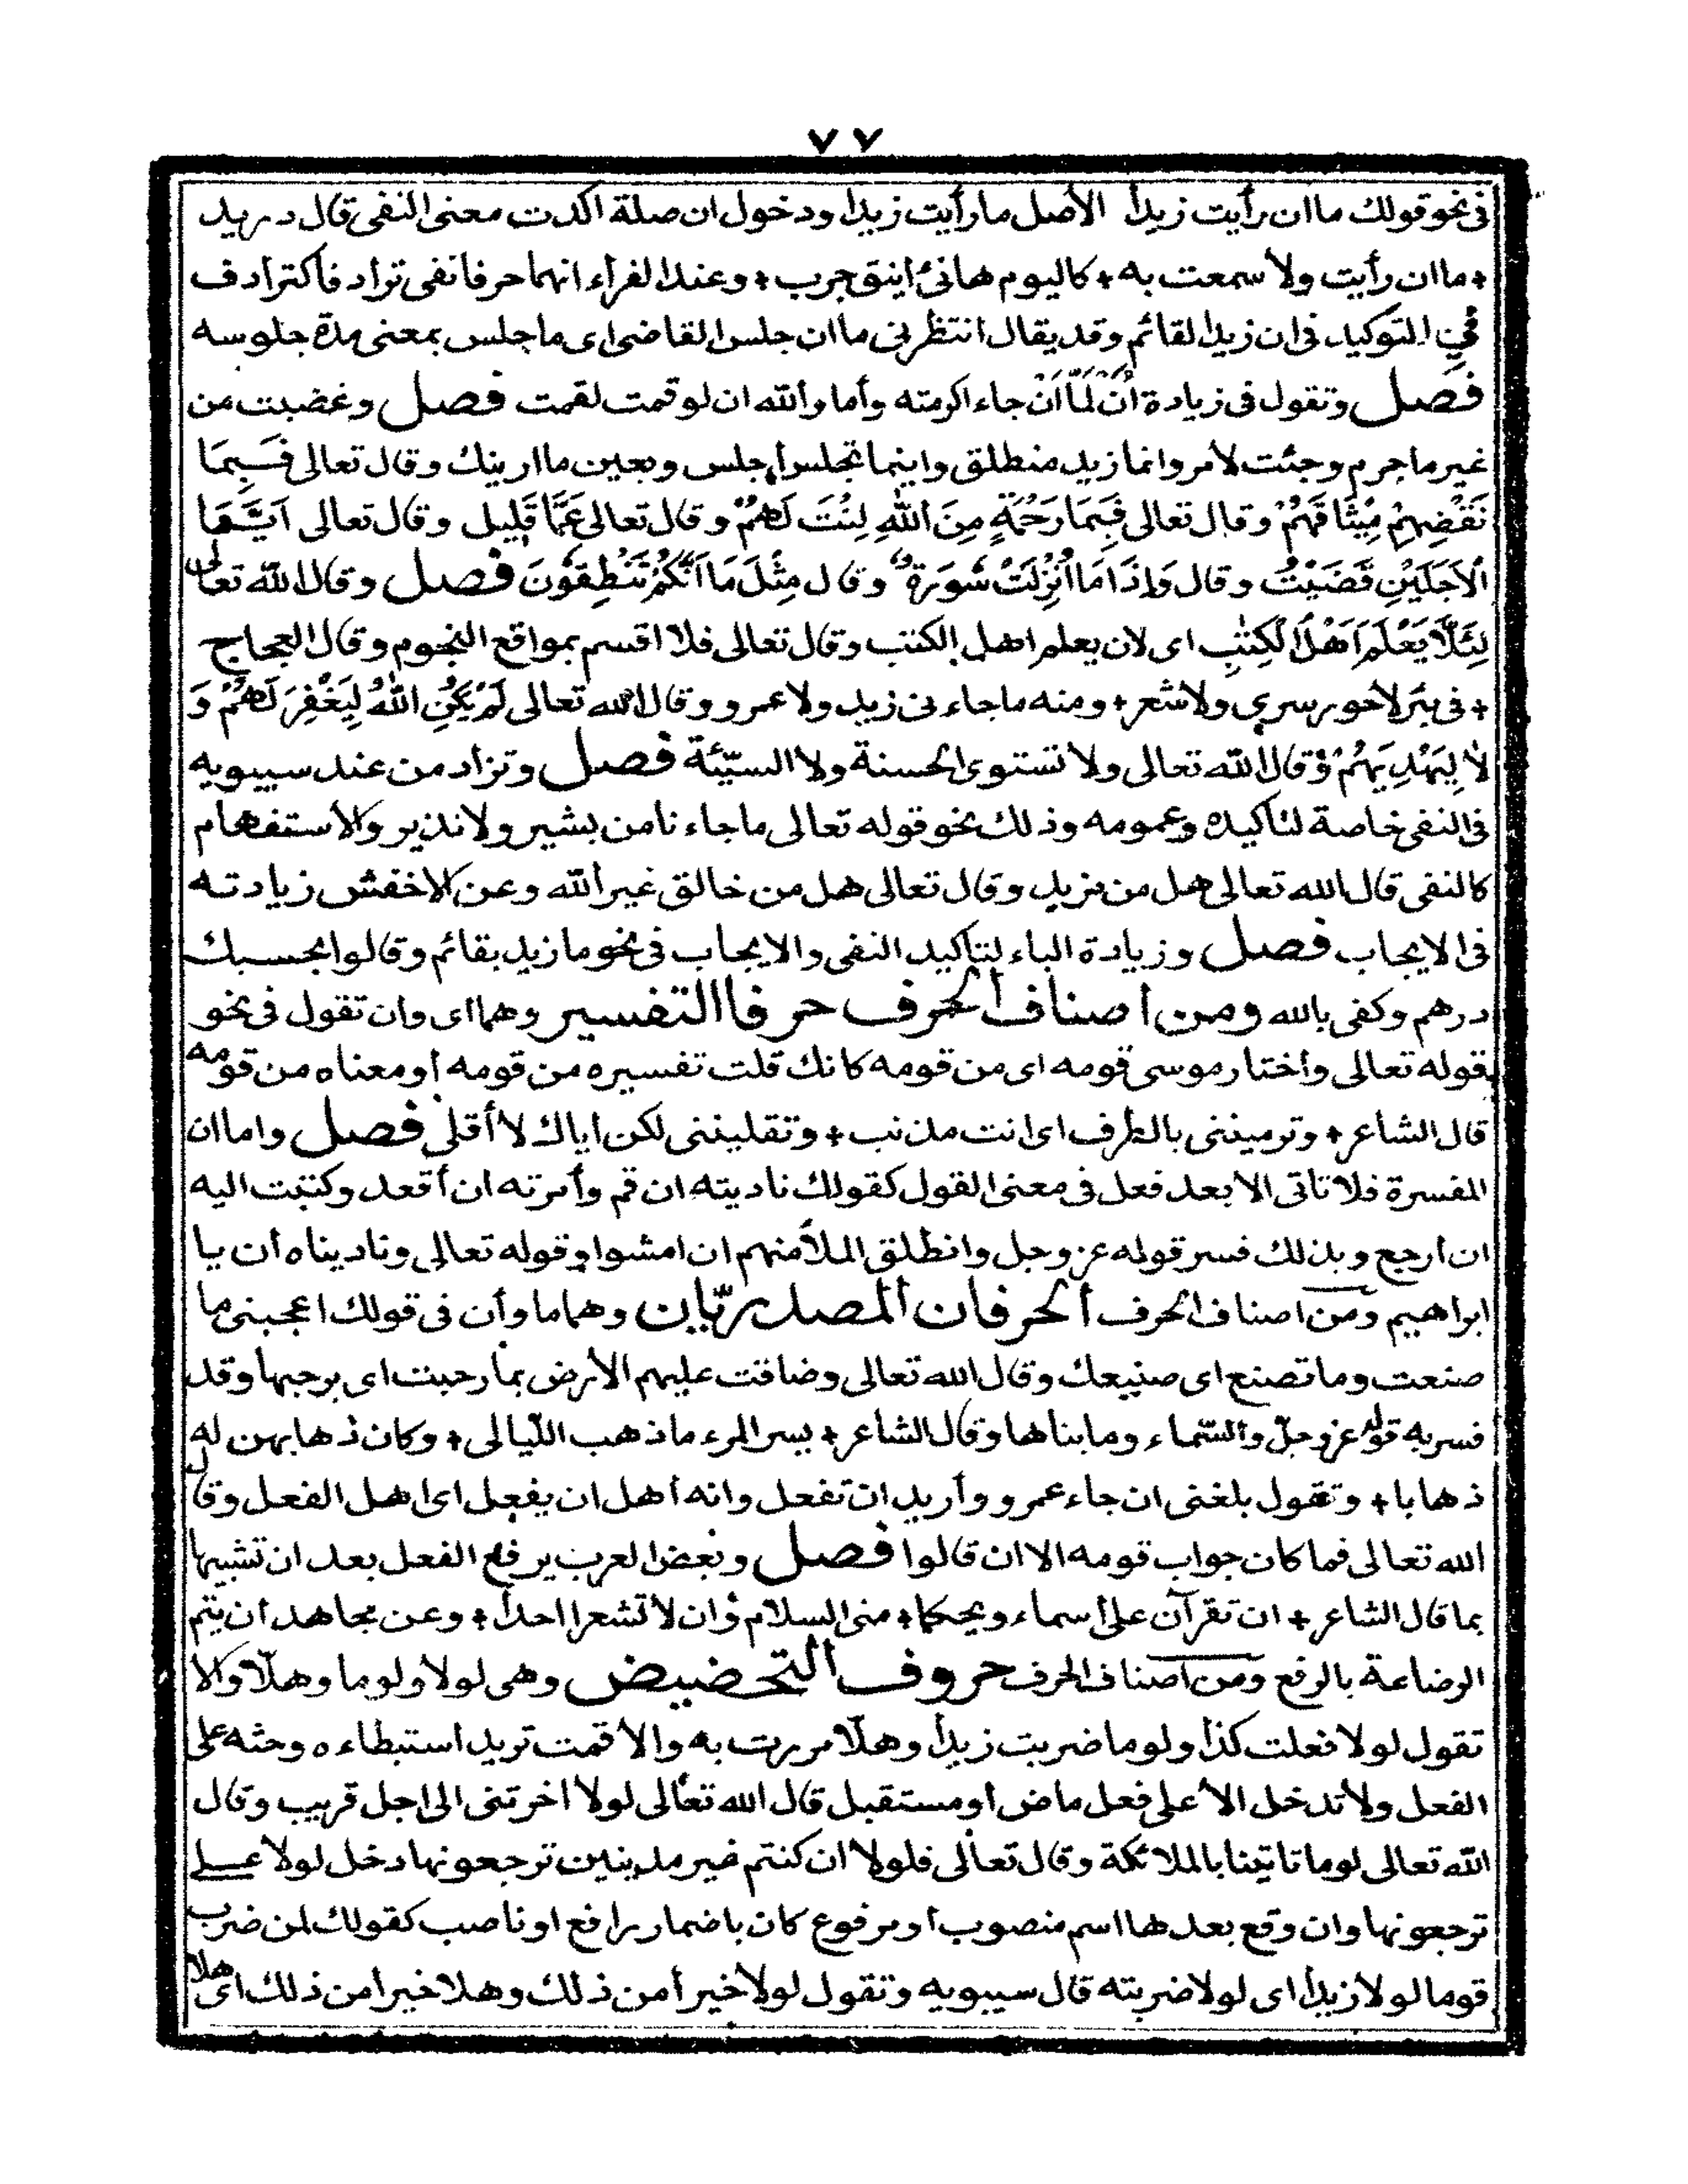 ٧٧
فى نحو قولك ما ان رأيت زيداً الأصل ما رأيت زيدا ودخول ان صلة اكدت معنى النفى قال دريد
+ ما ان رأيت ولا سمعت به + كاليوم هانئ اينق جرب + وعند الفراء انهما حرفا نفى ترادفا كترادف
فى التوكيد فى ان زيدا لقائم وقد يقال انتظرنى ما ان جلس القاضى اى ما جلس بمعنى مدة جلوسه
فصل وتقول فى زيادة أنْ لَمَّا أَنْ جاء اكرمته وأما والله ان لو قمت لقمت فصل وغضبت من
غير ما جرم وجئت لامر وانما زيد منطلق واينما تجلس اجلس وبعين ما ارينك وقال تعالى فَبِمَا
نَقْضِهِمْ مِيْثَاقَهُمْ وقال تعالى فَبِمَا رَحْمَةٍ مِنَ اللهِ لِنْتَ لَهُمْ وقال تعالى عَمَّا قَلِيل وقال تعالى اَيَّمَا
الْاَجَلَيْنِ قَضَيْتُ وقال وَاِذَا مَا اُنْزِلَتْ سُوَرَةٌ وقال مِثْلَ مَا اَنَّكُمْ تَنْطِقُوْنَ فصل وقال الله تعالى
لِئَلَّا يَعْلَمَ اَهْلُ الْكِتٰبِ اى لان يعلم اهل الكتب وقال تعالى فلا اقسم بمواقع النجوم وقال العجاج
+ فى بئر لا حور سرى ولا شعر + ومنه ما جاءنى زيد ولا عمرو وقال الله تعالى لَمْ يَكُنِ اللهُ لِيَغْفِرَ لَهُمْ وَ
لَا لِيَهْدِيَهُمْ وقال الله تعالى ولا تستوى الحسنة ولا السيّئة فصل وتزاد من عند سيبويه
فى النفى خاصة لتاكيده وعمومه وذلك نحو قوله تعالى ما جاءنا من بشير ولا نذير والاستفهام
كالنفى قال الله تعالى هل من مزيد وقال تعالى هل من خالق غير الله وعن الاخفش زيادته
فى الايجاب فصل وزيادة الباء لتاكيد النفى والايجاب فى نحو ما زيد بقائم وقالوا بحسبك
درهم وكفى بالله ومن أصناف الحرف حرفا التفسير وهما اى وان تقول فى نحو
قوله تعالى واختار موسى قومه اى من قومه كانك قلت تفسيره من قومه أو معناه من قومه
قال الشاعر + وترمينى بالطرف اى انت مذنب + وتقلينى لكن اياك لا أقلى فصل واما ان
المفسرة فلا تاتى الا بعد فعل فى معنى القول كقولك ناديته ان قم وأمرته ان أقعد وكتبت اليه
ان أرجع وبذلك فسر قوله عز وجل وانطلق الملأ منهم ان امشوا وقوله تعالى وناديناه أن يا
ابراهيم ومن اصناف الحرف ألحرفان ألمصدريّان وهما ما وأن فى قولك اعجبنى ما
صنعت وما تصنع اى صنيعك وقال الله تعالى وضاقت عليهم الأرض بما رحبت اى برحبها وقد
فسر به قوله عز وجلّ والسّماء وما بناها وقال الشاعر + يسر المرء ما ذهب الليالى + وكان ذهابهن له
ذهابا + وتقول بلغنى ان جاء عمرو وأريد ان تفعل وانه أهل ان يفعل اى اهل الفعل وقال
الله تعالى فما كان جواب قومه الا ان قالوا فصل وبعض العرب يرفع الفعل بعد ان تشبيها
بما قال الشاعر + ان تقرآن على أسماء ويحكما + منى السلام وان لا تشعرا احداً + وعن مجاهد أن يتم
الرضاعة بالرفع ومن أصناف الحرف حروف ألتحضيض وهى لولا ولوما وهلّا والا
تقول لولا فعلت كذا ولوما ضربت زيداً وهلّا مررت به والا قمت تريد استبطاءه وحثه على
الفعل ولا تدخل الا على فعل ماض أو مستقبل قال الله تعالى لولا اخرتنى الى اجل قريب وقال
الله تعالى لوما تاتينا بالملائكة وقال تعالى فلولا ان كنتم غير مدينين ترجعونها دخل لولا على
ترجعونها وان وقع بعدها اسم منصوب أو مرفوع كان باضمار رافع او ناصب كقولك لمن ضرب
قوما لولا زيداً اى لولا ضربته قال سيبويه وتقول لولا خيرأ من ذلك وهلا خيرأ من ذلك اى هلا